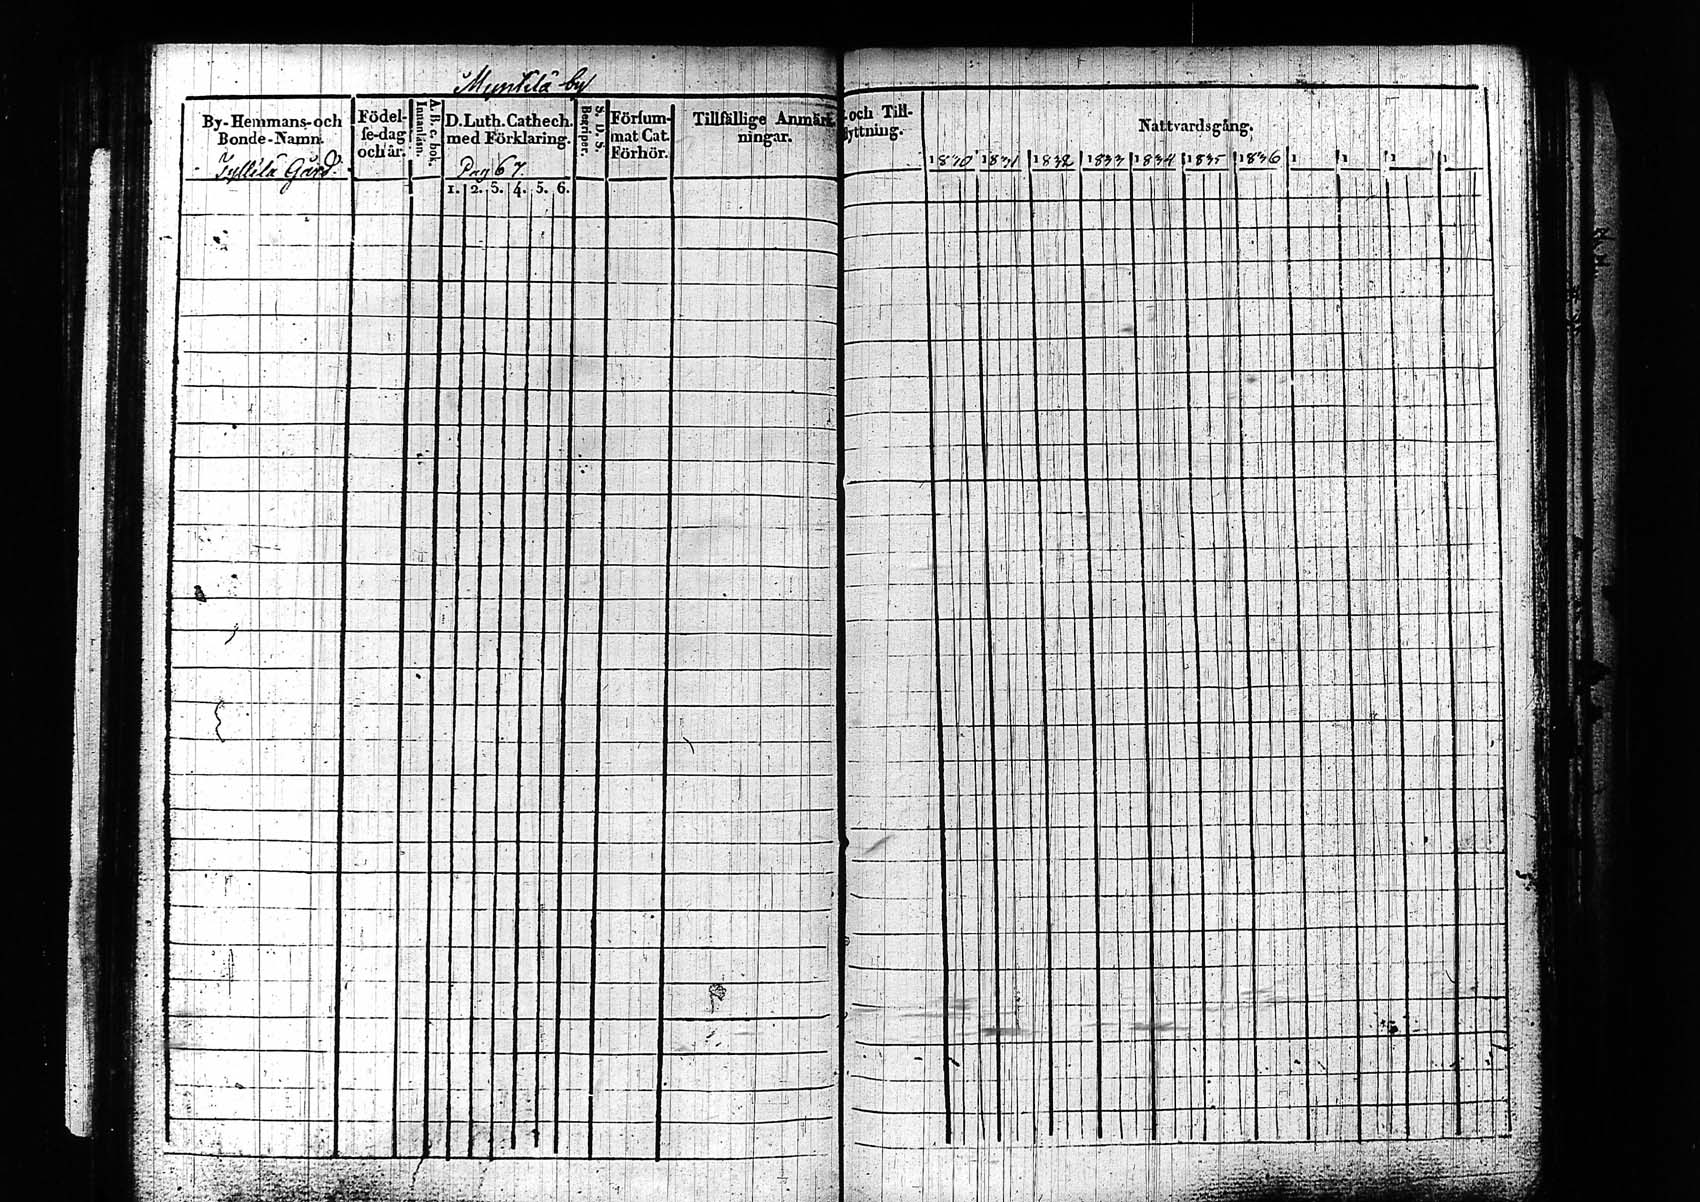 Myntilä by
By-Hemmans-och Bonde-Namn.
Jyllilä Gård.
Födel-
se-dag
och år.
A. B. c. bok.
Innanläsn.
D. Luth. Cathech.
med Förklaring.
Pag 67.
1. 2. 3. 4. 5. 6.
S. D. S.
Begriper.
Försum-
mat Cat.
Förhör.
Tillfällige Anmärk-
ningar.
och Till-
flyttning.
Nattvardsgång.
1830 1831 1832 1833 1834 1835 1836 1 1 1 1